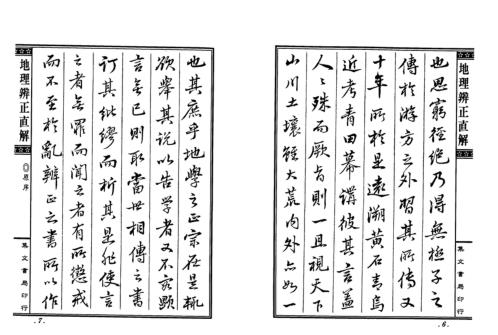 地理辨正直解
集文書局印行
.6.
也思窮徑絕乃得無極子之
傳於游方之外習其所傳又
十年所於是遠溯黃石青烏
近考青田幕講彼其言蓋
人々殊而厥旨則一且視天下
山川土壤雖大荒內外亦如一
也其庶乎地學之正宗在是輒
欲舉其說以告學者又不容顯
言無已則取當世相傳之書
訂其紕繆而析其是非使言
之者無罪而聞之者有所懲戒
而不至於亂辨正之書所以作
地理辨正直解
◎原序
集文書局印行
.7.